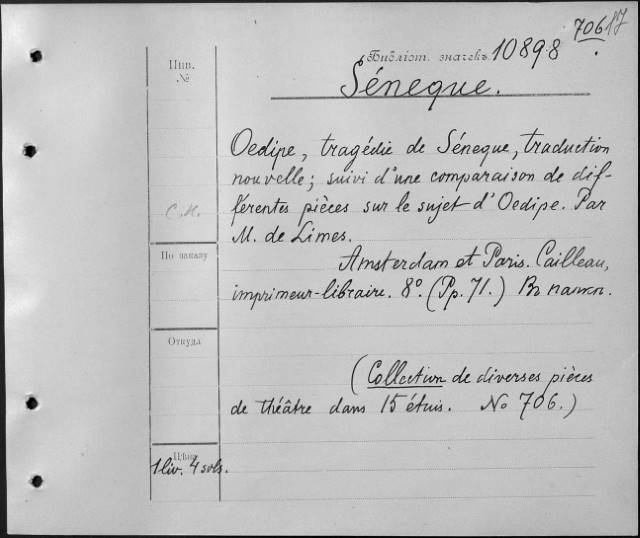 706 17
Инв.
№
Библіот. значекъ 10898
Séneque.
Oedipe, tragédie de Séneque, traduction
nouvelle; suivi d'une comparaison de dif-
férentes pièces sur le sujet d'Oedipe. Par
С.И.
M. de Limes.
По заказу
Amsterdam et Paris. Cailleau,
imprimeur-libraire. 8º. (Pp. 71.) Въ папк.
Откуда
(Collection de diverses pièces
de théâtre dans 15 étuis. No 706.)
Цѣна
1 liv. 4 sols.